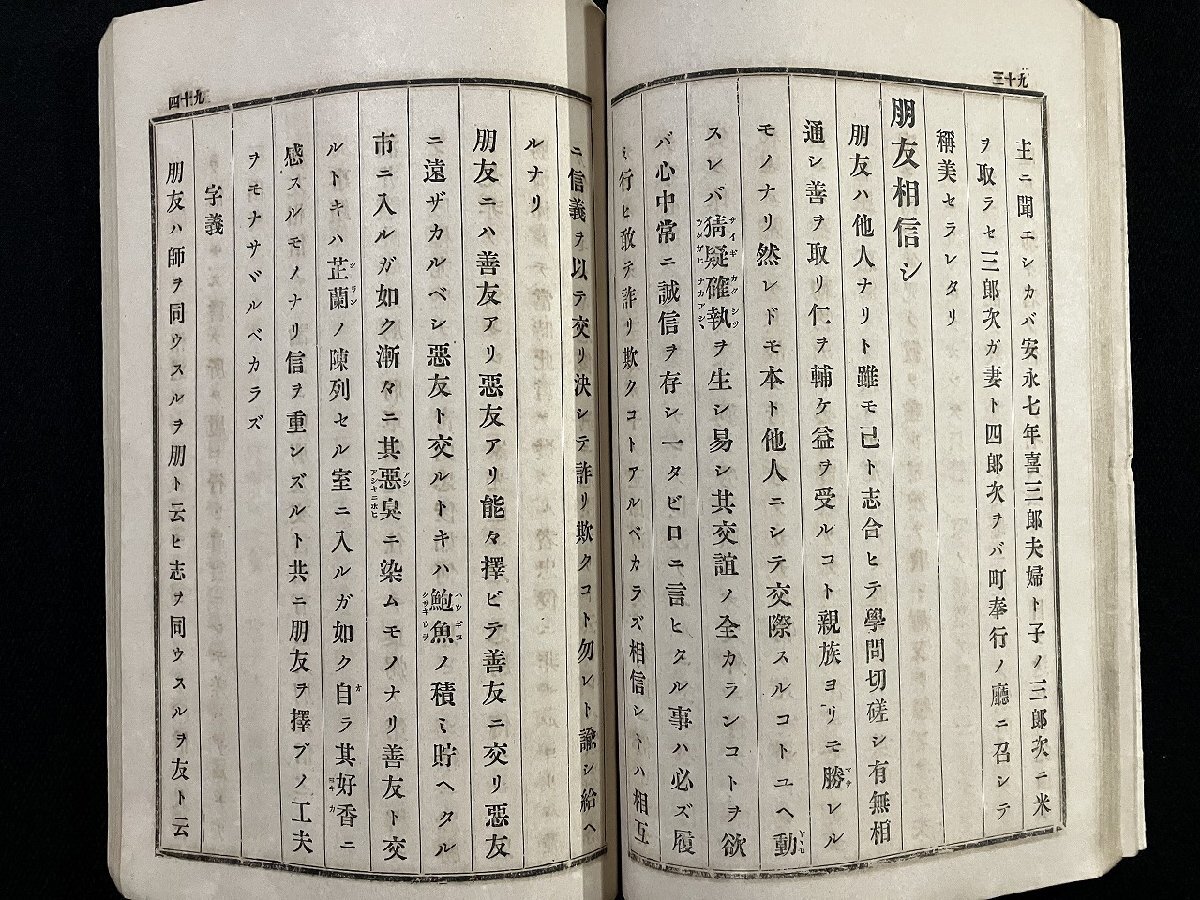 三十九
主ニ聞ニシカバ安永七年喜三郎夫婦ト子ノ三郎次ニ米
ヲ取ラセ三郎次ガ妻ト四郎次ヲバ町奉行ノ廳ニ召シテ
稱美セラレタリ
朋友相信シ
朋友ハ他人ナリト雖モ己ト志合ヒテ學問切磋シ有無相
通シ善ヲ取リ仁ヲ輔ケ益ヲ受ルコト親族ヨリモ勝レル
モノナリ然レドモ本ト他人ニシテ交際スルコトユヘ動
スレバ猜疑確執ヲ生シ易シ其交誼ノ全カランコトヲ欲
バ心中常ニ誠信ヲ存シ一タビ口ニ言ヒタル事ハ必ズ履
ミ行ヒ敢テ詐リ欺クコトアルベカラズ相信シトハ相互
四十九
ニ信義ヲ以テ交リ決シテ詐リ欺クコト勿レト諭シ給ヘ
ルナリ
朋友ニハ善友アリ惡友アリ能々擇ビテ善友ニ交リ惡友
ニ遠ザカルベシ惡友ト交ルトキハ鮑魚ノ積ミ貯ヘタル
市ニ入ルガ如ク漸々ニ其惡臭ニ染ムモノナリ善友ト交
ルトキハ芷蘭ノ陳列セル室ニ入ルガ如ク自ラ其好香ニ
感スルモノナリ信ヲ重ンズルト共ニ朋友ヲ擇ブノ工夫
ヲモナサヾルベカラズ
字義
朋友ハ師ヲ同ウスルヲ朋ト云ヒ志ヲ同ウスルヲ友ト云